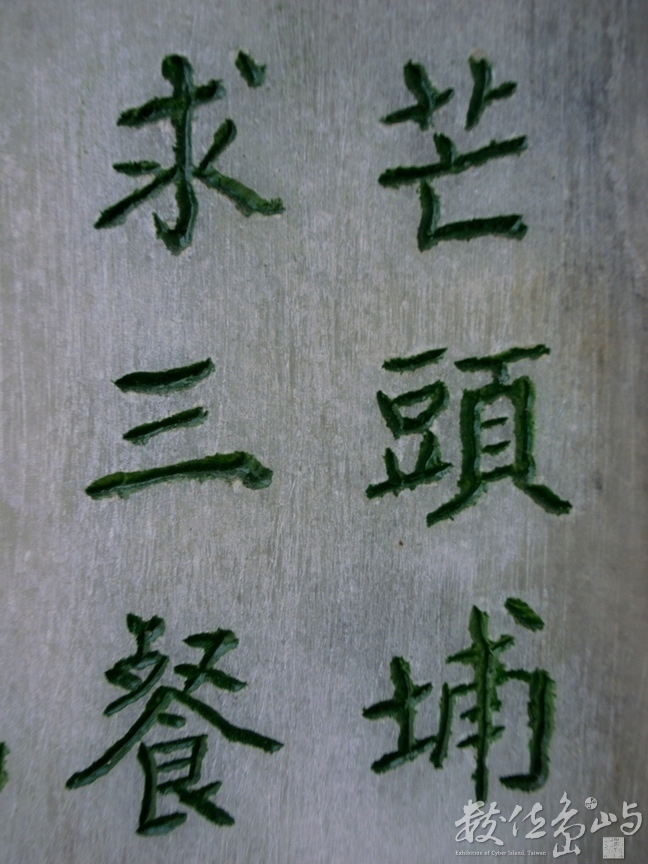 芒頭埔
求三餐
數位島嶼
Exhibition of Cyber Island, Taiwan